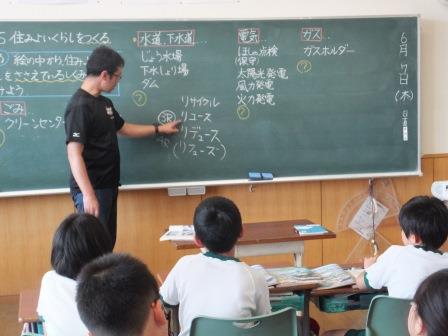 5 住みよいくらしをつくる
絵の中から、住みよ
をささえているしくみ
よう
ごみ
クリーンセンター
水道、下水道…
じょう水場
下水しょり場
ダム
?
3R
リサイクル
リユース
リデュース
(リフューズ)
電気…
ほしゅ点検
(保守)
太陽光発電
風力発電
火力発電
?
ガス…
ガスホルダー
?
6月7日(木)
日直